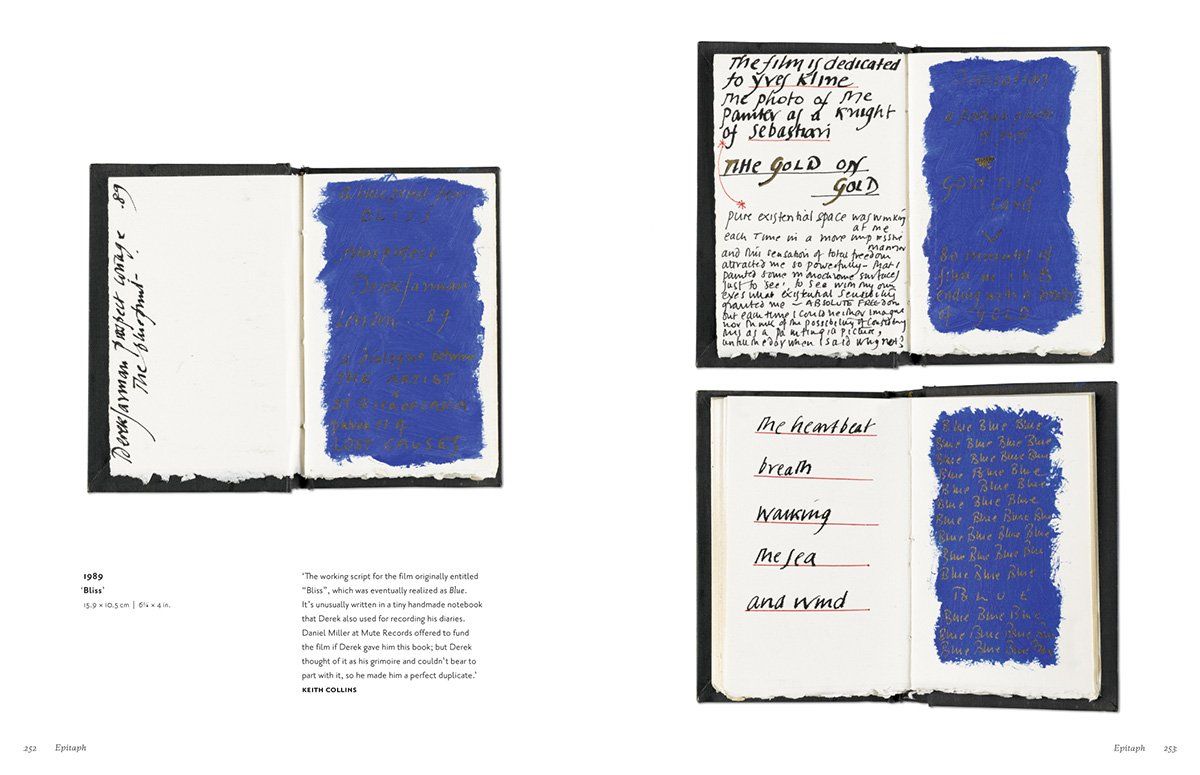 Derek Jarman prospect cottage .89
The blueprint-
BLISS
Derek Jarman
London . 89
a dialogue between
THE ARTIST
&
ST
LOST CAUSES
1989
‘Bliss’
15.9 × 10.5 cm | 6¼ × 4 in.
‘The working script for the film originally entitled
“Bliss”, which was eventually realized as Blue.
It’s unusually written in a tiny handmade notebook
that Derek also used for recording his diaries.
Daniel Miller at Mute Records offered to fund
the film if Derek gave him this book; but Derek
thought of it as his grimoire and couldn’t bear to
part with it, so he made him a perfect duplicate.’
KEITH COLLINS
252 Epitaph
The film is dedicated
to yves Kline
The photo of the
painter as a knight
of Sebastian
THE GOLD ON
GOLD
pure existential space was winking
at me
each Time in a more impressive
manner
and this sensation of total freedom
attracted me so powerfully – that I
painted some monochrome surfaces
just to 'see', to see with my own
eyes what existential sensibility
granted me – ABSOLUTE FREEDOM
but each time I could neither imagine
nor think of the possibility of considering
this as a painting a picture,
until the day when I said why not?
GOLD
of GOLD
The heartbeat
breath
walking
the sea
and wind
Blue Blue Blue
Blue Blue Blue Blue
Blue Blue Blue Blue
Blue Blue Blue
Blue Blue Blue
Blue Blue Blue
Blue Blue Blue Blue
Blue Blue Blue
Blue Blue Blue
Blue Blue Blue
BLUE
Blue Blue Blue
Blue Blue Blue Blue
Blue Blue Blue Blue
Epitaph 253